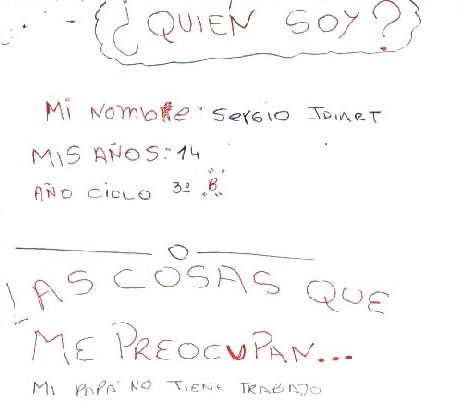 ¿QUIÉN SOY?
Mi Nombre: Sergio IDIART
MIS AÑOS: 14
AÑO CICLO 3º B
LAS COSAS QUE
ME PREOCUPAN...
MI PAPÁ NO TIENE TRABAJO